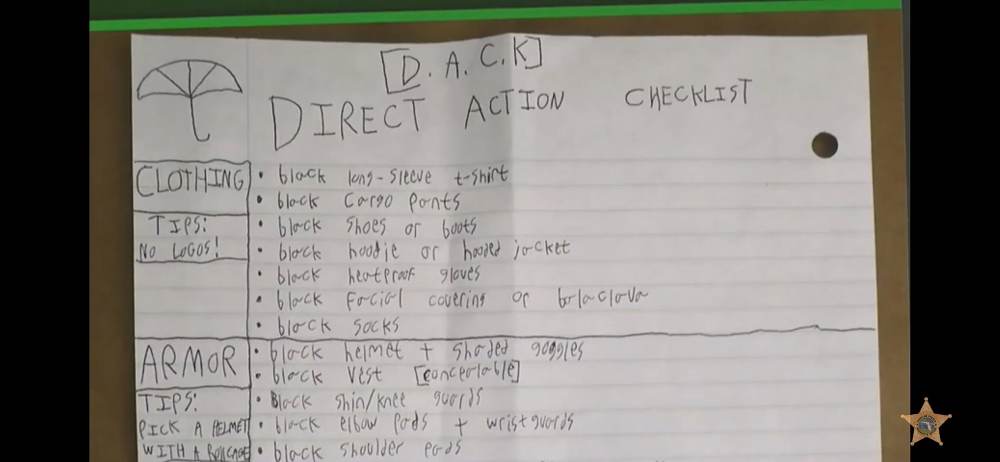 [D.A.C.K]
DIRECT ACTION CHECKLIST
CLOTHING
• black long-sleeve t-shirt
• black cargo pants
TIPS:
NO LOGOS!
• black shoes or boots
• black hoodie or hooded jacket
• black heatproof gloves
• black facial covering or balaclava
• black socks
ARMOR
• black helmet + shaded goggles
• black vest [concealable]
TIPS:
PICK A HELMET
WITH A
• Black shin/knee guards
• black elbow pads + wristguards
• black shoulder pads